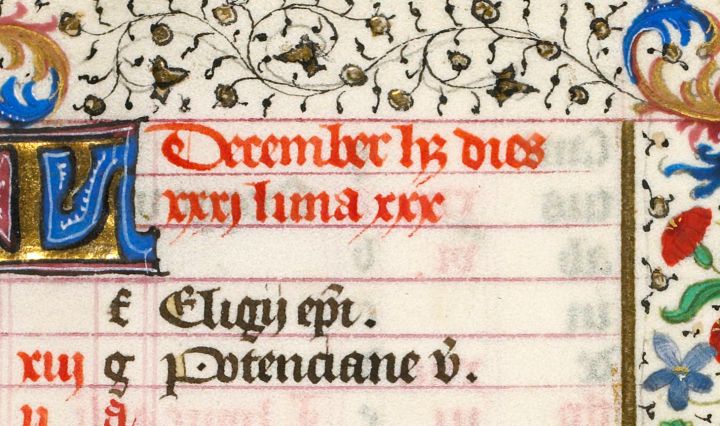 KL December hꝫ dies
xxxi luna xxx
f Eligij ep̃i.
xiij g Potenciane v̄.
ij a